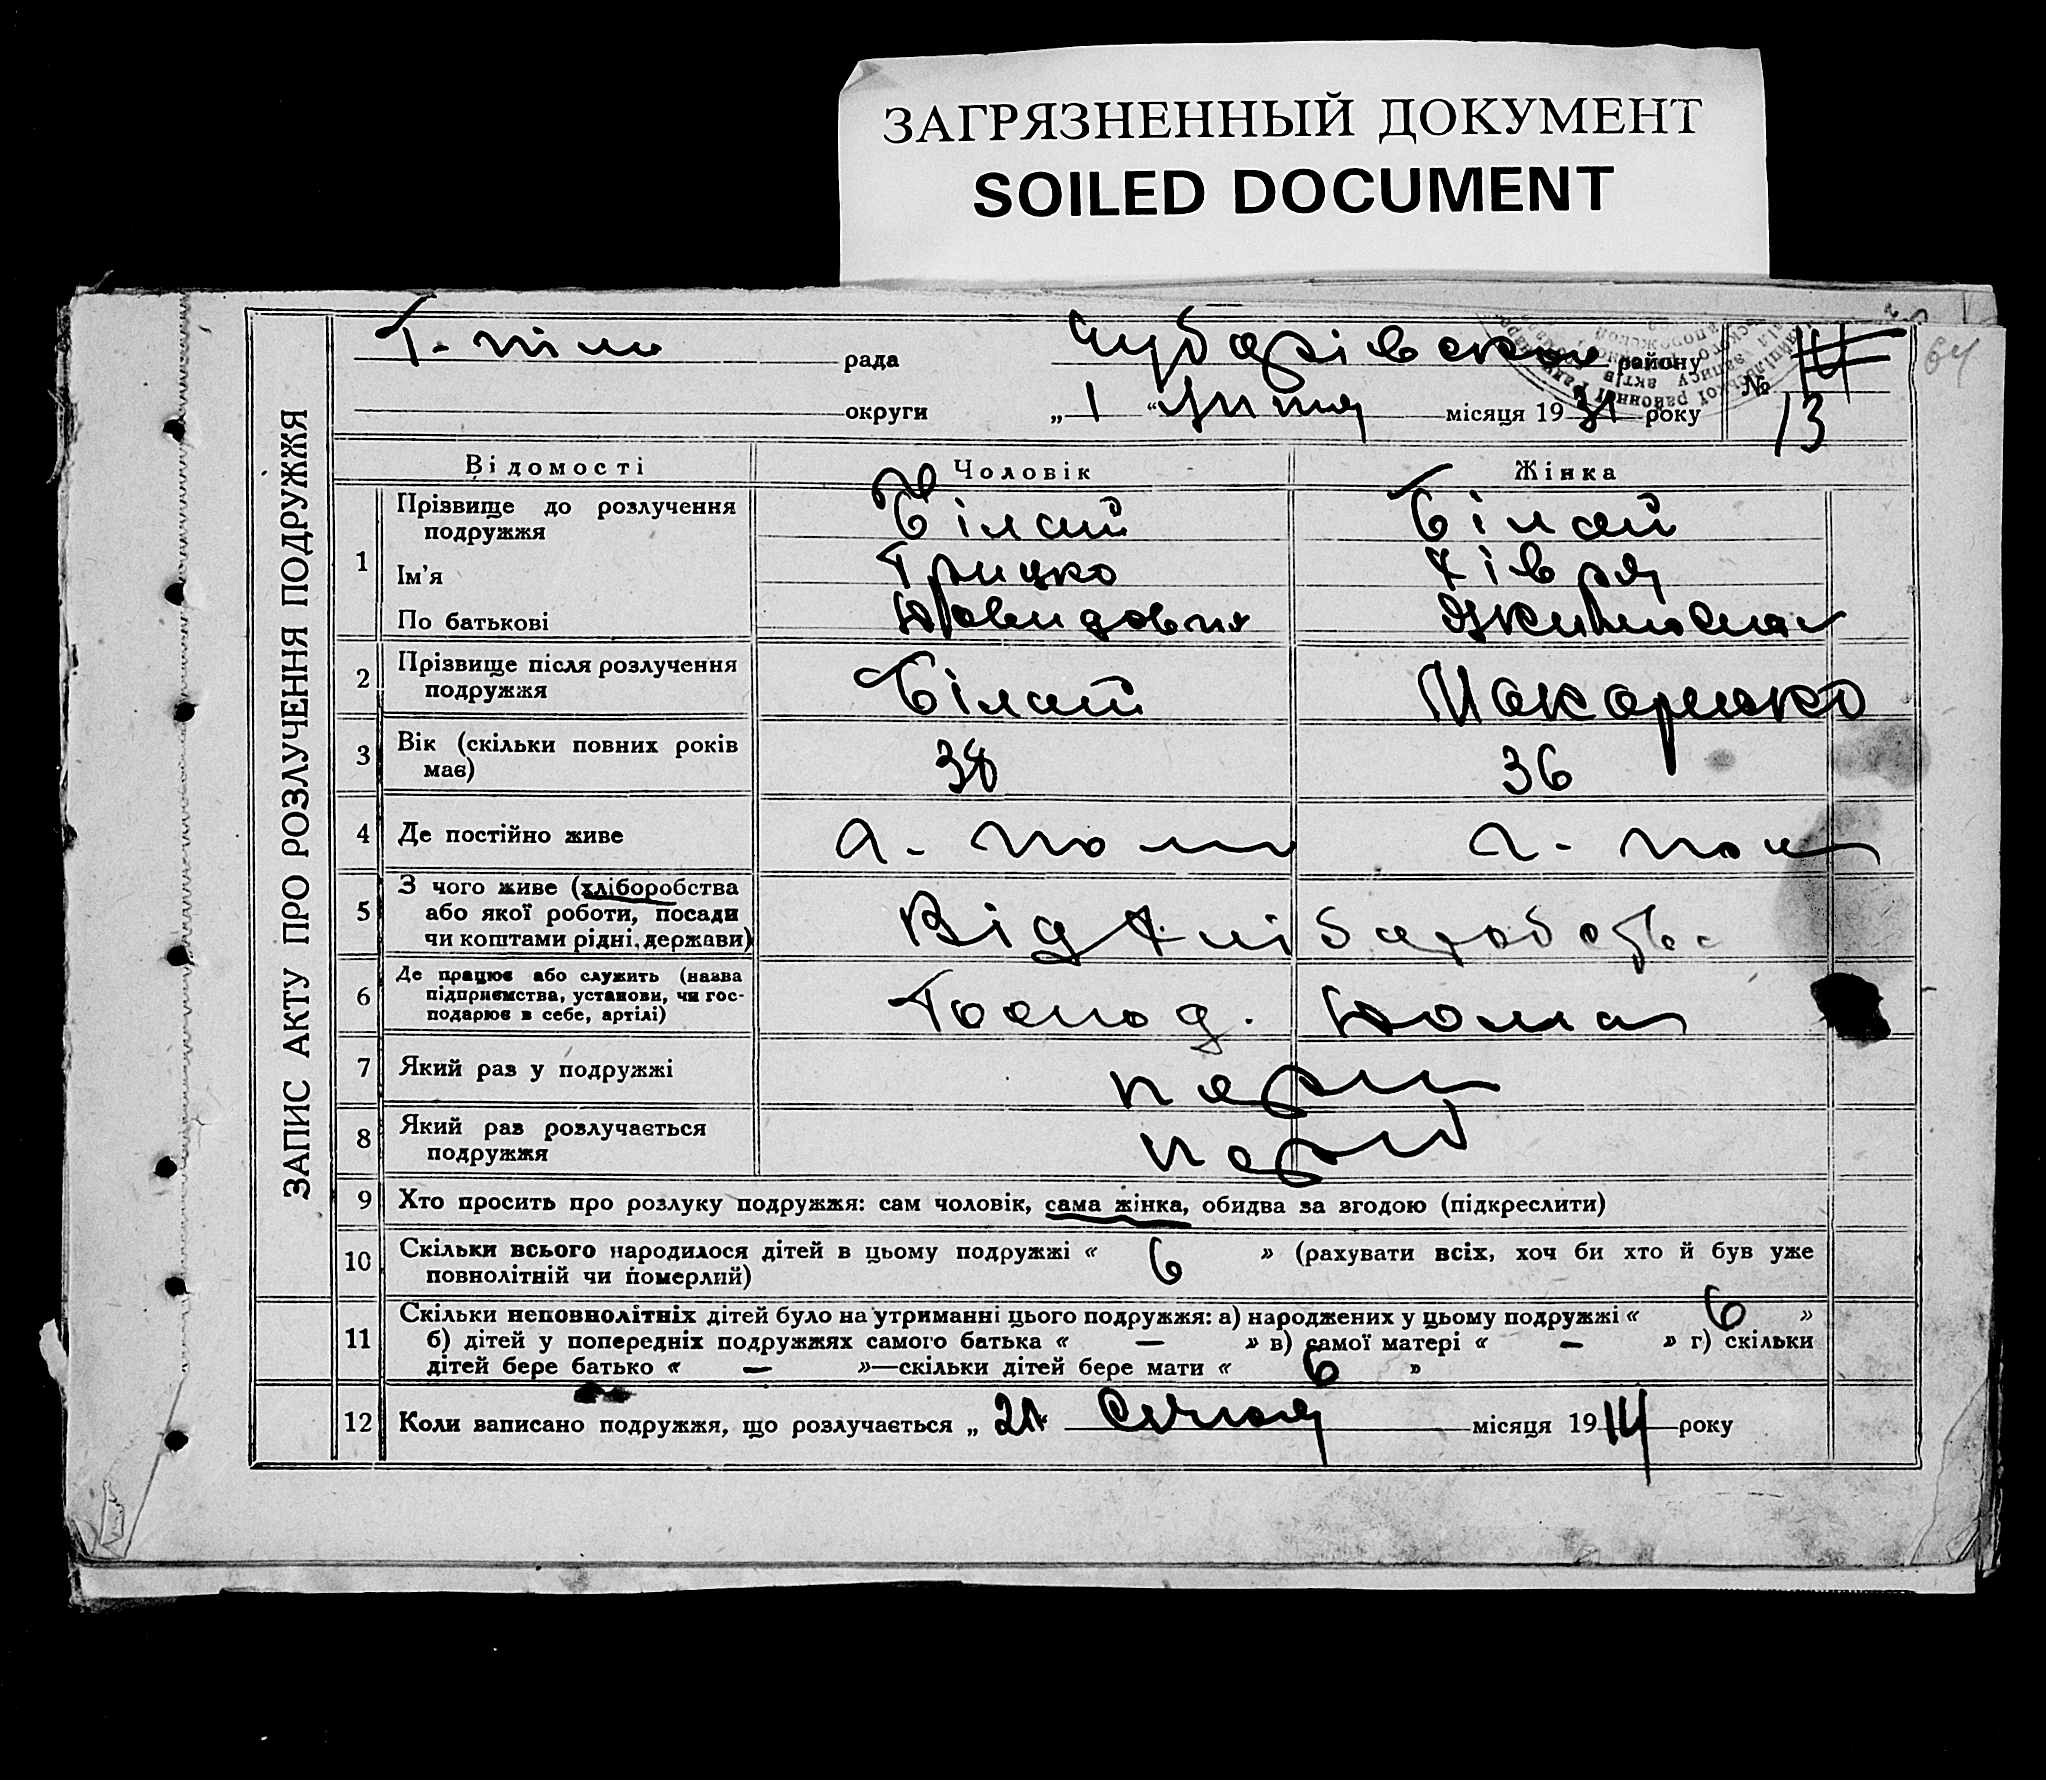 ЗАГРЯЗНЕННЫЙ ДОКУМЕНТ
SOILED DOCUMENT
64
ЗАПИС АКТУ ПРО РОЗЛУЧЕННЯ ПОДРУЖЖЯ
Г. піли рада Чубарівского району №
округи „ 1 “ Липня місяця 1931 року 13
Відомості Чоловік Жінка
1 Прізвище до розлучення подружжя Білай Білай
Ім'я Грицко Хівря
По батькові Давидович
2 Прізвище після розлучення подружжя Білай Макаренко
3 Вік (скільки повних років має) 38 36
4 Де постійно живе
5 З чого живе (хліборобства
або якої роботи, посади
чи коштами рідні, держави) Від хліборобства
6 Де працює або служить (назва
підприємства, установи, чи гос-
подарює в себе, артілі) Господ. Дома
7 Який раз у подружжі перш
8 Який раз розлучається
подружжя перш
9 Хто просить про розлуку подружжя: сам чоловік, сама жінка, обидва за згодою (підкреслити)
10 Скільки всього народилося дітей в цьому подружжі « 6 » (рахувати всіх, хоч би хто й був уже
повнолітній чи померлий)
11 Скільки неповнолітніх дітей було на утриманні цього подружжя: а) народжених у цьому подружжі « 6 »
б) дітей у попередніх подружжях самого батька « — » в) самої матері « — » г) скільки
дітей бере батько « — »—скільки дітей бере мати « 6 »
12 Коли записано подружжя, що розлучається „ 21 “ Січня місяця 1914 року